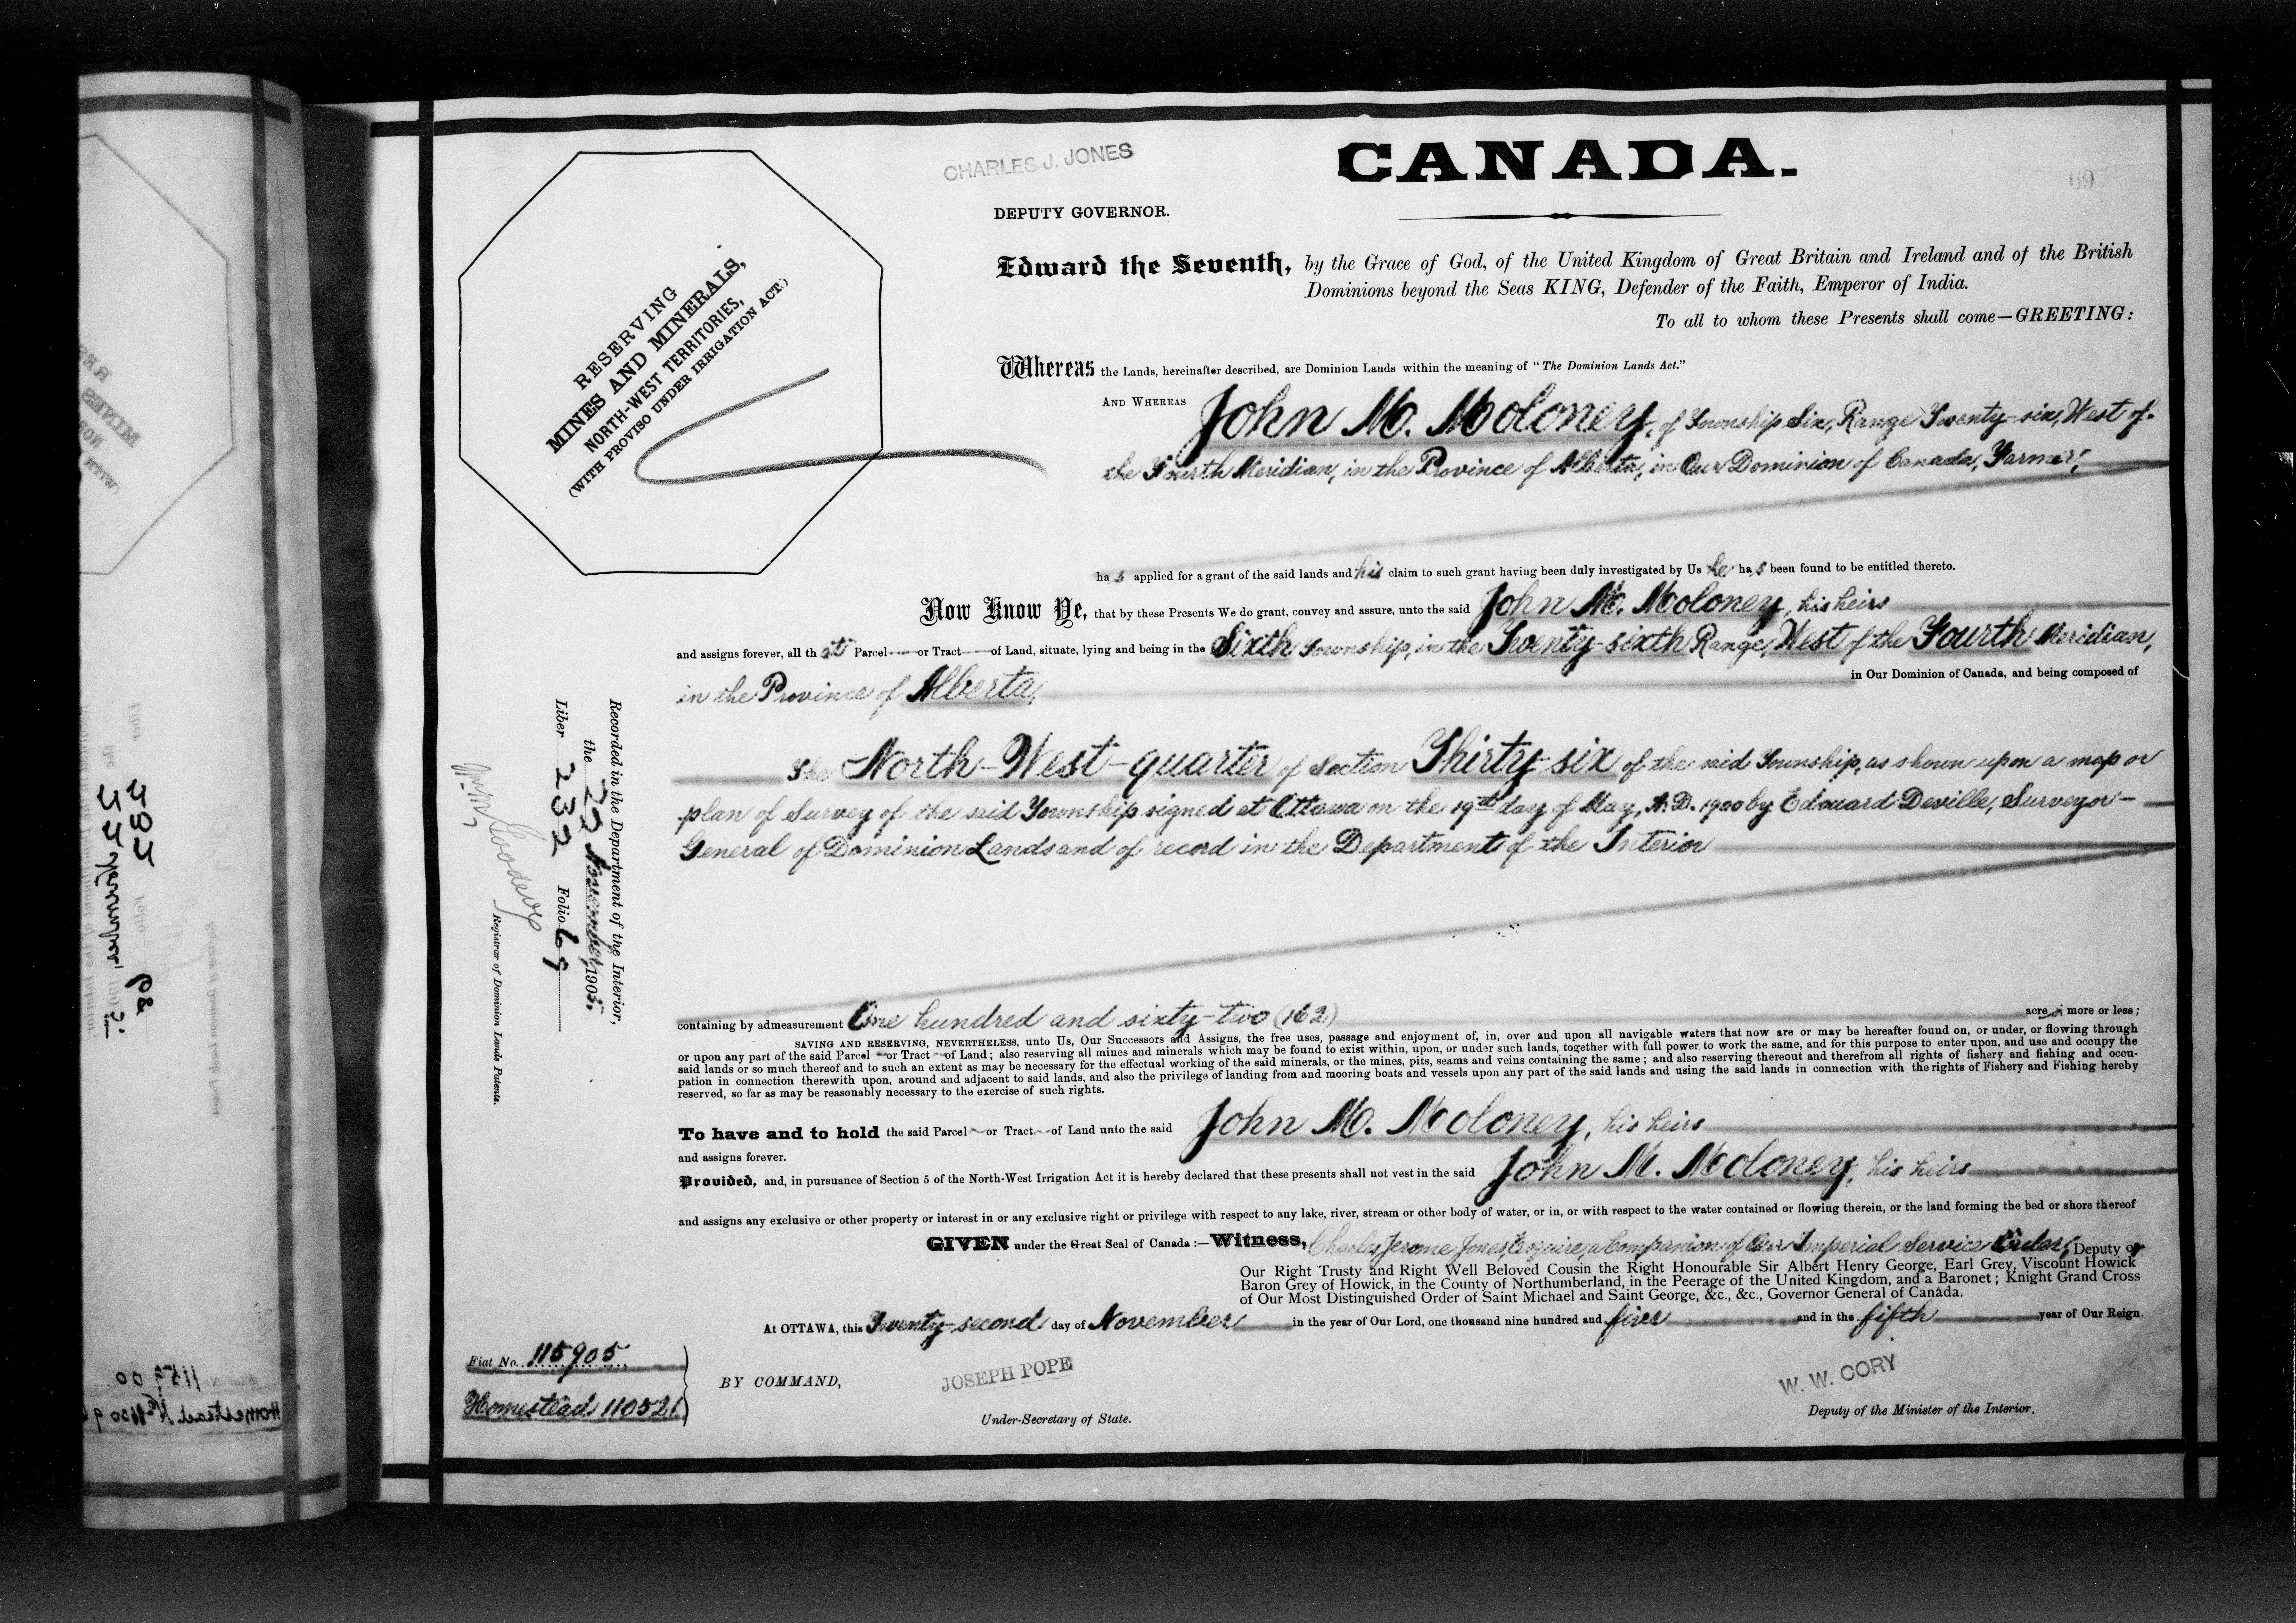 CHARLES J. JONES
CANADA.
69
DEPUTY GOVERNOR.
RESERVING
MINES AND MINERALS,
NORTH-WEST TERRITORIES,
(WITH PROVISO UNDER IRRIGATION ACT.)
Edward the Seventh, by the Grace of God, of the United Kingdom of Great Britain and Ireland and of the British
Dominions beyond the Seas KING, Defender of the Faith, Emperor of India.
To all to whom these Presents shall come—GREETING:
Whereas the Lands, hereinafter described, are Dominion Lands within the meaning of "The Dominion Lands Act."
AND WHEREAS John M. Moloney, of Township Six, Range Twenty-six, West of
the Fourth Meridian, in the Province of Alberta, in Our Dominion of Canada, Farmer,
has applied for a grant of the said lands and his claim to such grant having been duly investigated by Us he has been found to be entitled thereto.
Now Know Ye, that by these Presents We do grant, convey and assure, unto the said John M. Moloney, his heirs
and assigns forever, all that Parcel or Tract of Land, situate, lying and being in the Sixth Township, in the Twenty-sixth Range, West of the Fourth Meridian,
in the Province of Alberta, in Our Dominion of Canada, and being composed of
The North-West-quarter of Section Thirty-six of the said Township, as shown upon a map or
plan of Survey of the said Township signed at Ottawa on the 19th day of May, A.D. 1900 by Edouard Deville, Surveyor-
General of Dominion Lands and of record in the Department of the Interior
containing by admeasurement One hundred and sixty-two (162) acres more or less;
SAVING AND RESERVING, NEVERTHELESS, unto Us, Our Successors and Assigns, the free uses, passage and enjoyment of, in, over and upon all navigable waters that now are or may be hereafter found on, or under, or flowing through
or upon any part of the said Parcel or Tract of Land; also reserving all mines and minerals which may be found to exist within, upon, or under such lands, together with full power to work the same, and for this purpose to enter upon, and use and occupy the
said lands or so much thereof and to such an extent as may be necessary for the effectual working of the said minerals, or the mines, pits, seams and veins containing the same; and also reserving thereout and therefrom all rights of fishery and fishing and occu-
pation in connection therewith upon, around and adjacent to said lands, and also the privilege of landing from and mooring boats and vessels upon any part of the said lands and using the said lands in connection with the rights of Fishery and Fishing hereby
reserved, so far as may be reasonably necessary to the exercise of such rights.
To have and to hold the said Parcel or Tract of Land unto the said John M. Moloney, his heirs
and assigns forever.
Provided, and, in pursuance of Section 5 of the North-West Irrigation Act it is hereby declared that these presents shall not vest in the said John M. Moloney, his heirs
and assigns any exclusive or other property or interest in or any exclusive right or privilege with respect to any lake, river, stream or other body of water, or in, or with respect to the water contained or flowing therein, or the land forming the bed or shore thereof
GIVEN under the Great Seal of Canada:—Witness, Charles Jerome Jones, Esquire, a Companion of Our Imperial Service Order, Deputy of
Our Right Trusty and Right Well Beloved Cousin the Right Honourable Sir Albert Henry George, Earl Grey, Viscount Howick
Baron Grey of Howick, in the County of Northumberland, in the Peerage of the United Kingdom, and a Baronet; Knight Grand Cross
of Our Most Distinguished Order of Saint Michael and Saint George, &c., &c., Governor General of Canada.
At OTTAWA, this Twenty-second day of November in the year of Our Lord, one thousand nine hundred and five and in the fifth year of Our Reign.
Fiat No. 115905
Homestead 110521
BY COMMAND,
JOSEPH POPE
Under-Secretary of State.
W. W. CORY
Deputy of the Minister of the Interior.
Recorded in the Department of the Interior,
the November, 1905,
Liber 232 Folio 69
Registrar of Dominion Lands Patents.